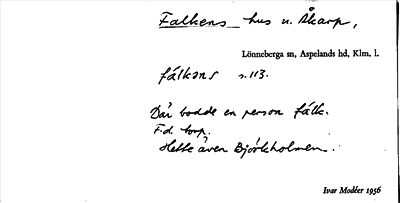 Falkens hus u. Åkarp,
Lönneberga sn, Aspelands hd, Klm. l.
fálkəns s. 113.
Där bodde en person Fálk.
F.d. torp.
Hette även Björkholmen.
Ivar Modéer 1956